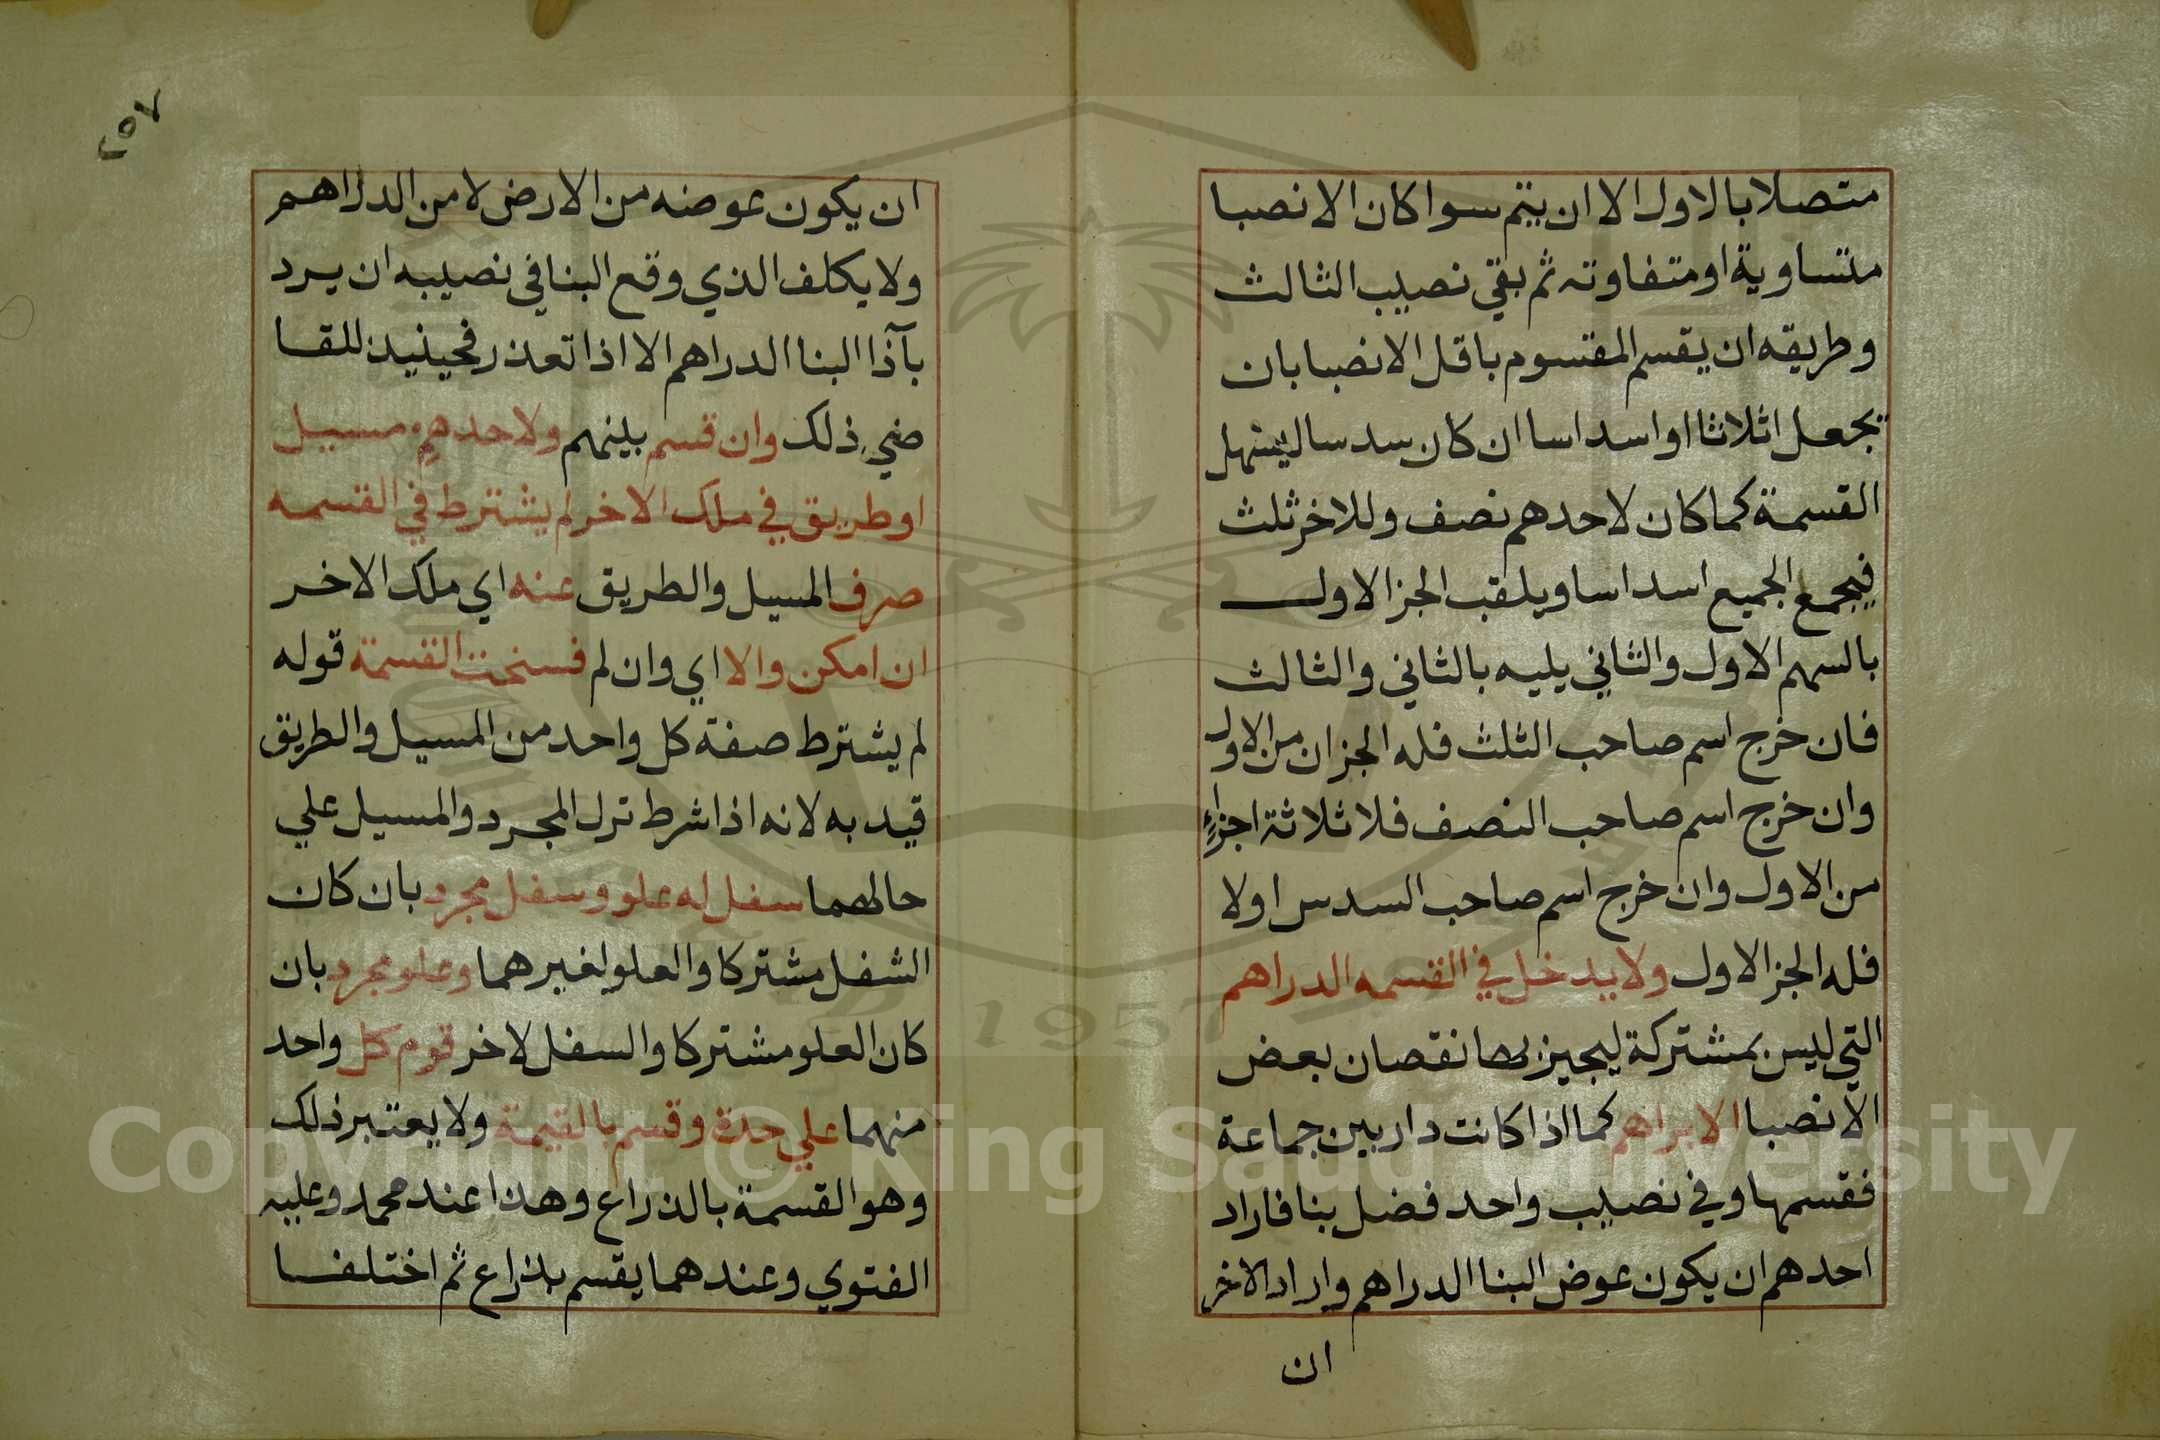 متصلا بالاول الا ان يتم سوا كان الانصبا
متساوية او متفاوته ثم بقي نصيب الثالث
وطريقه ان يقسم المقسوم باقل الانصبا بان
يجعل اثلاثا او اسداسا ان كان سدسا ليسهل
القسمة كما كان لاحدهم نصف وللاخر ثلث
فيجمع الجميع اسداسا ويلقب الجز الاول
بالسهم الاول والثاني يليه بالثاني والثالث
فان خرج اسم صاحب الثلث فله الجزان من الاول
وان خرج اسم صاحب النصف فلا ثلاثة اجزاء
من الاول وان خرج اسم صاحب السدس اولا
فله الجز الاول ولا يدخل في القسمه الدراهم
التي ليس بمشتركة ليجيز بها نقصان بعض
الانصبا الا براهم كما اذا كانت دار بين جماعة
فقسمها وفي نصيب واحد فضل بنا فاراد
احدهم ان يكون عوض البنا الدراهم واراد الاخر
ان
٢٥٧
ان يكون عوضه من الارض لا من الدراهم
ولا يكلف الذي وقع البنا في نصيبه ان يرد
بآذا البنا الدراهم الا اذا تعذر فحينيذ للقا
ضي ذلك وان قسم بينهم ولاحدهم مسيل
او طريق في ملك الاخر لم يشترط في القسمه
صرف المسيل والطريق عنه اي ملك الاخر
ان امكن والا اي وان لم فسخت القسمة قوله
لم يشترط صفة كل واحد من المسيل والطريق
قيد به لانه اذا شرط ترك المجرد والمسيل علي
حالهما سفل له علو وسفل مجرد بان كان
الشفل مشتركا والعلو لغيرهما وعلو مجرد بان
كان العلو مشتركا والسفل لاخر قوم كل واحد
منهما علي حدة وقسم بالقيمة ولا يعتبر ذلك
وهو القسمة بالذراع وهذا عند محمد وعليه
الفتوي وعندهما يقسم بالذراع ثم اختلفا
1957
Copyright © King Saud University